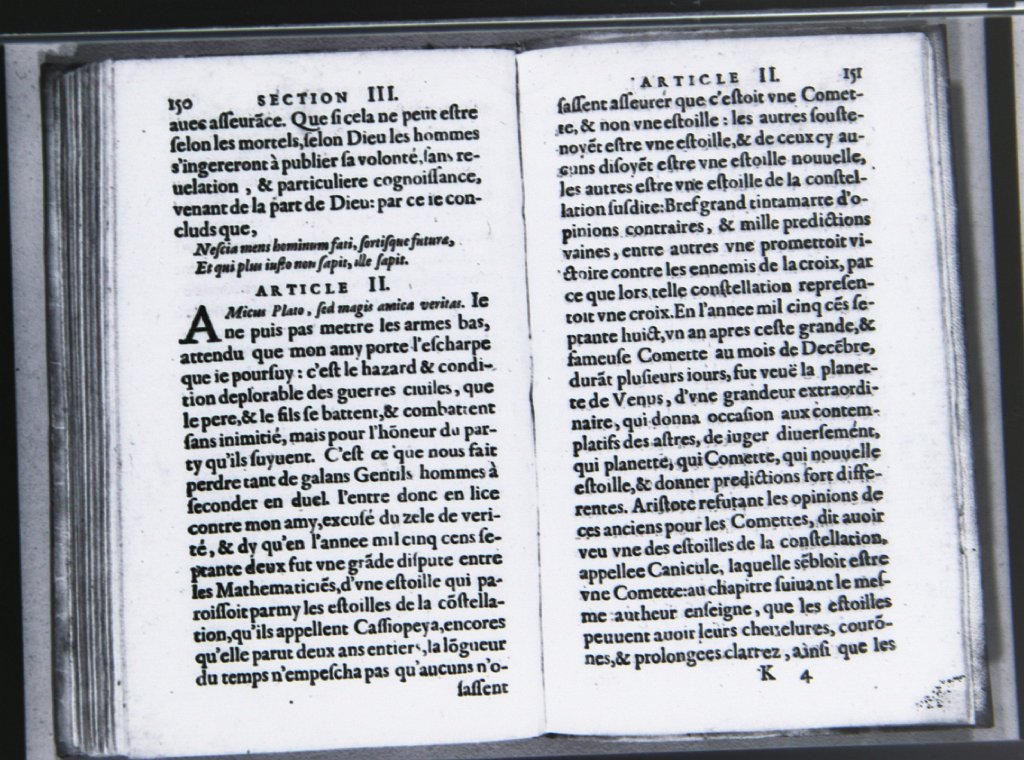 150 SECTION III.
auec asseurãce. Que si cela ne peut estre
selon les mortels, selon Dieu les hommes
s'ingereront à publier sa volonté, sans re-
uelation, & particuliere cognoissance,
venant de la part de Dieu: par ce ie con-
cluds que,
Nescia mens hominum fati, sortisque futura,
Et qui plus iusto non sapit, ille sapit.
ARTICLE II.
AMicus Plato, sed magis amica veritas. Ie
ne puis pas mettre les armes bas,
attendu que mon amy porte l'escharpe
que ie poursuy: c'est le hazard & condi-
tion deplorable des guerres ciuiles, que
le pere, & le fils se battent, & combattent
sans inimitié, mais pour l'hõneur du par-
ty qu'ils suyuent. C'est ce que nous fait
perdre tant de galans Gentils hommes à
seconder en duel. I'entre donc en lice
contre mon amy, excusé du zele de veri-
té, & dy qu'en l'annee mil cinq cens se-
ptante deux fut vne grãde dispute entre
les Mathematiciẽs, d'vne estoille qui pa-
roissoit parmy les estoilles de la cõstella-
tion, qu'ils appellent Cassiopeya, encores
qu'elle parut deux ans entiers, la lõgueur
du temps n'empescha pas qu'aucuns n'o-
sassent
ARTICLE II. 151
sassent asseurer que c'estoit vne Comet-
te, & non vne estoille: les autres souste-
noyẽt estre vne estoille, & de ceux cy au-
cuns disoyẽt estre vne estoille nouuelle,
les autres estre vne estoille de la constel-
lation susdite: Bref grand tintamarre d'o-
pinions contraires, & mille predictions
vaines, entre autres vne promettoit vi-
ctoire contre les ennemis de la croix, par
ce que lors telle constellation represen-
toit vne croix. En l'annee mil cinq cẽs se-
ptante huict, vn an apres ceste grande, &
fameuse Comette au mois de Decẽbre,
durãt plusieurs iours, fut veuë la planet-
te de Venus, d'vne grandeur extraordi-
naire, qui donna occasion aux contem-
platifs des astres, de iuger diuersemẽnt,
qui planette, qui Comette, qui nouuelle
estoille, & donner predictions fort diffe-
rentes. Aristote refutant les opinions de
ces anciens pour les Comettes, dit auoir
veu vne des estoilles de la constellation,
appellee Canicule, laquelle sẽbloit estre
vne Comette: au chapitre suiuant le mes-
me autheur enseigne, que les estoilles
peuuent auoir leurs cheuelures, courõ-
nes, & prolongees clartez, ainsi que les
K 4